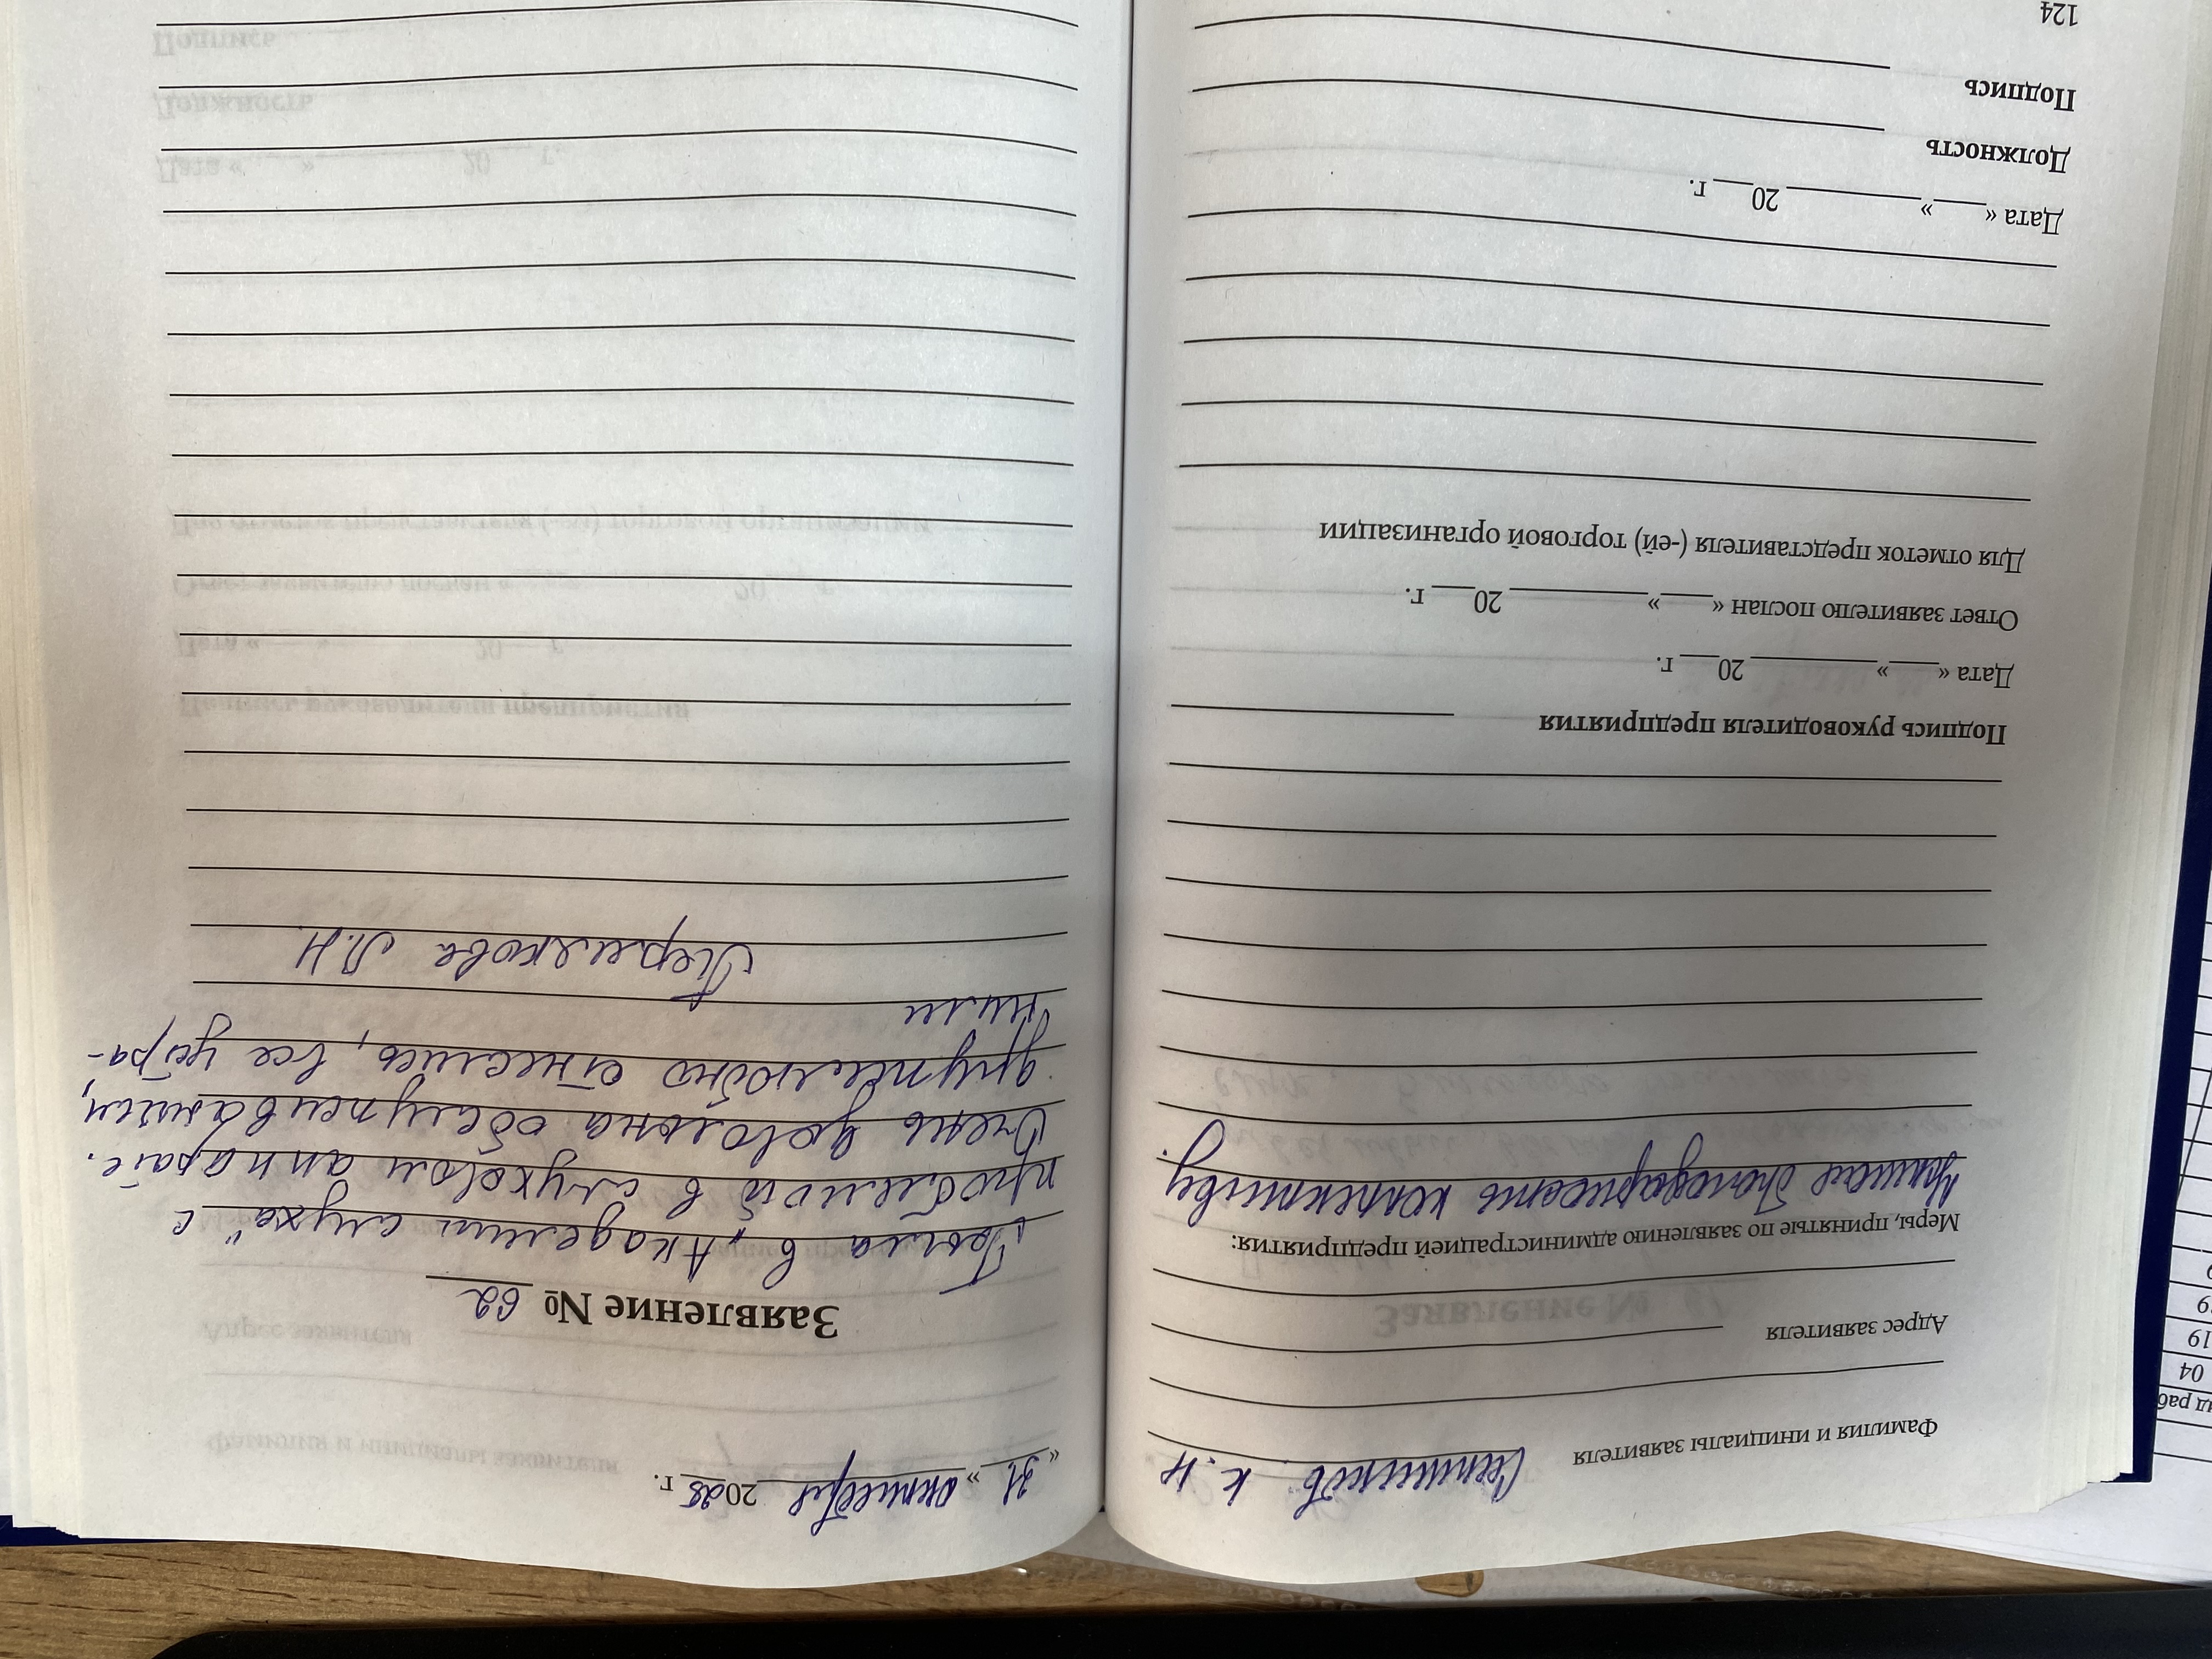 Фамилия и инициалы заявителя К. Н
Адрес заявителя
Меры, принятые по заявлению администрацией предприятия:
благодарность коллективу.
Подпись руководителя предприятия
Дата «___»__________ 20___ г.
Ответ заявителю послан «___»__________ 20___ г.
Для отметок представителя (-ей) торговой организации
Дата «___»__________ 20___ г.
Должность
Подпись
124
«31» октября 2025 г.
Заявление № 62
Была в „Академии слуха" с
проблемой в слуховом аппарате.
Очень довольна обслуживанием,
дружелюбно отнеслись, все устра-
нили
Л.Н.